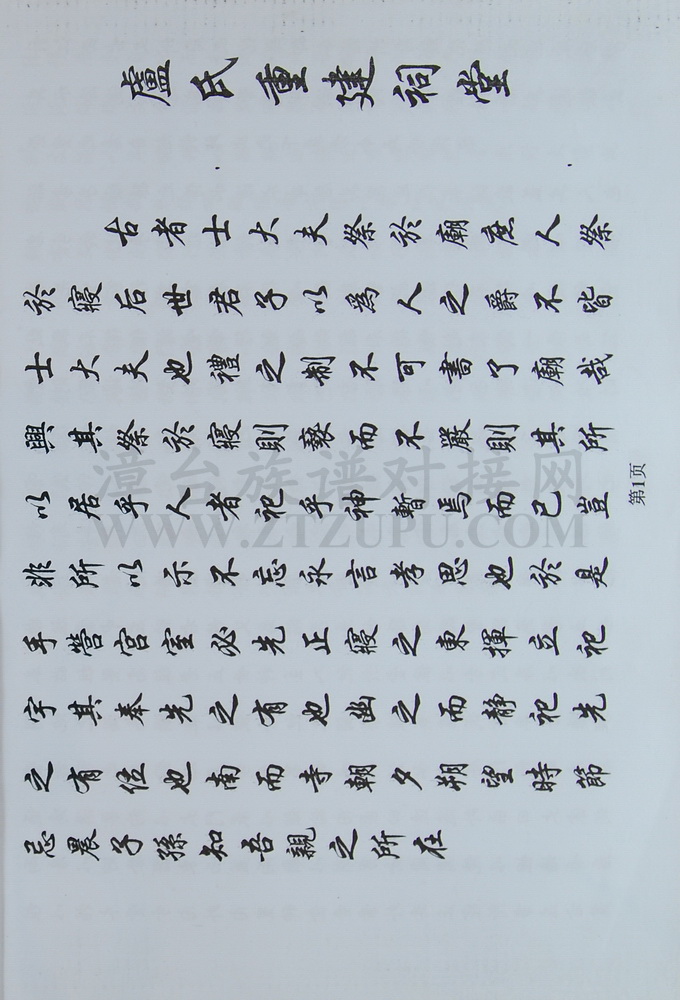 盧氏重建祠堂
古者士大夫祭於廟庶人祭
於寢后世君子以為人之爵不皆
士大夫也禮之制不可書了廟哉
興其祭於寢則褻而不嚴則其所
以居乎人者祀乎神暫焉而已豈
非所以示不忘永言孝思也於是
乎營宮室必先正寢之東擇立祀
宇其奉先之有也幽之而靜祀先
之有位也南而寺朝夕朔望時節
忌晨子孫知吾親之所在
第1页
漳台族谱对接网
WWW.ZTZUPU.COM